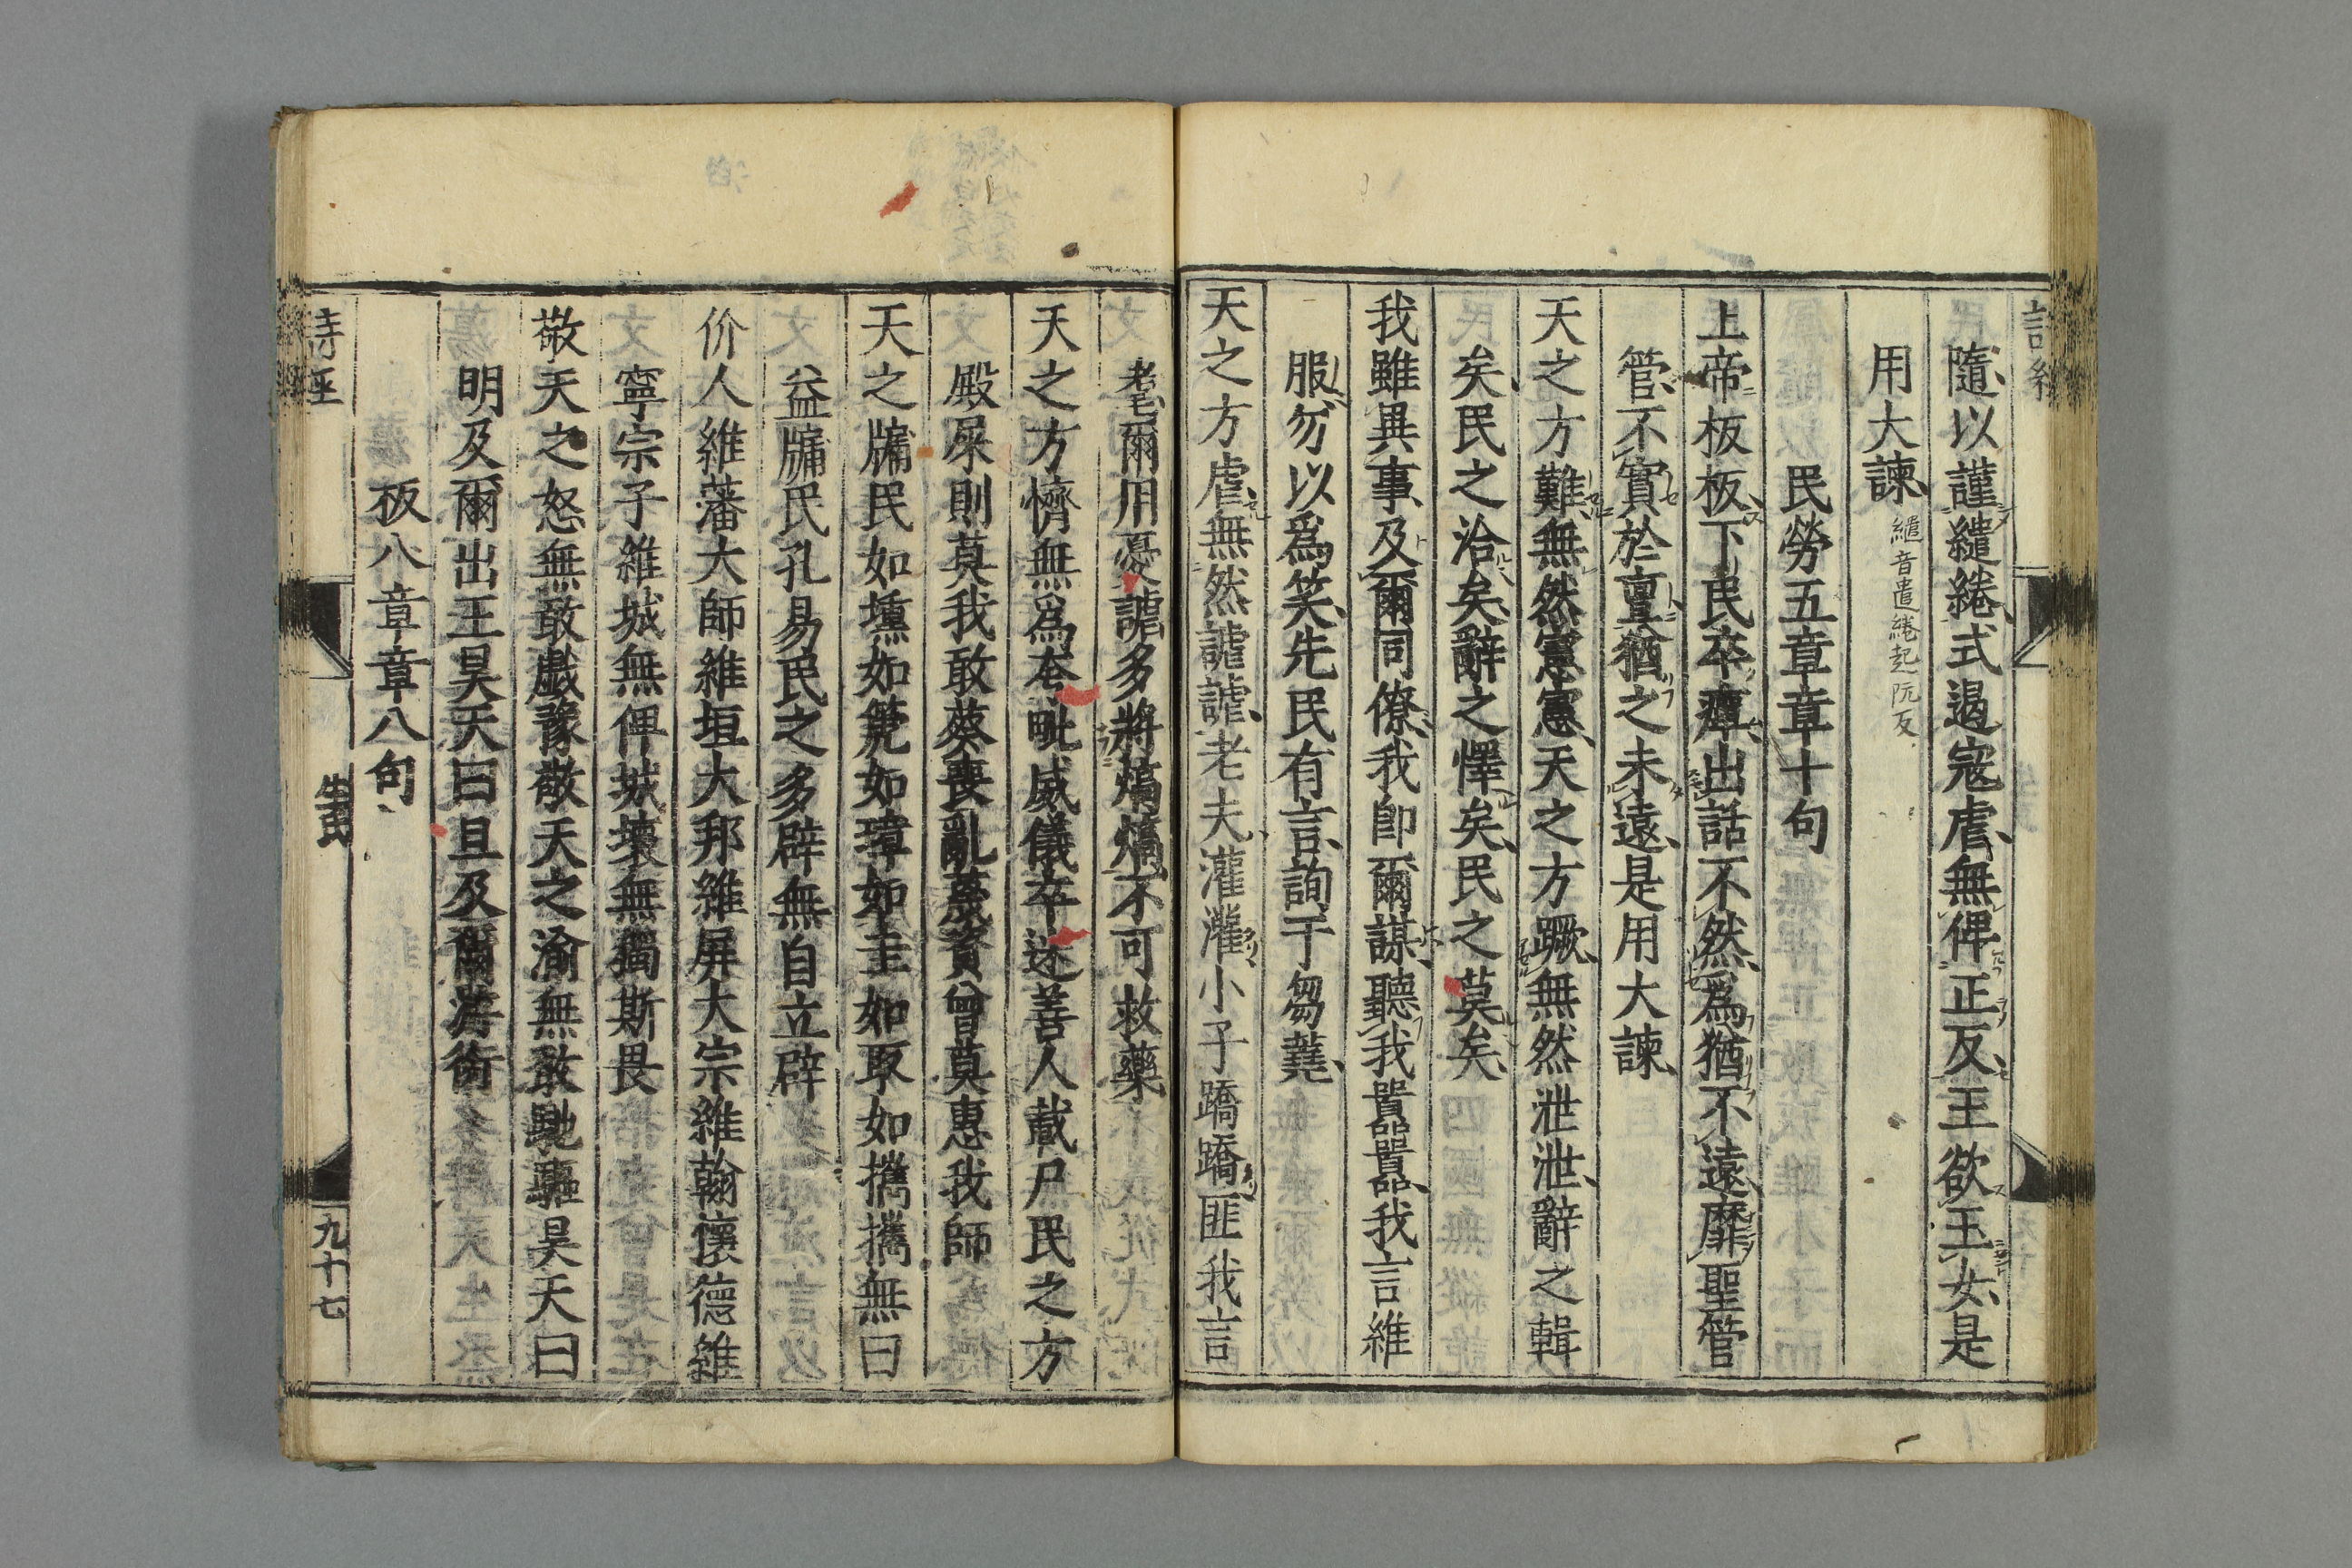 隨以謹繾綣式遏寇虐無俾正反王欲玉女是
用大諫 繾音遣綣起阮反
民勞五章章十句
上帝板板下民卒癉出話不然爲猶不遠靡聖管
管不實於亶猶之未遠是用大諫
天之方難無然憲憲天之方蹶無然泄泄辭之輯
矣民之洽矣辭之懌矣民之莫矣
我雖異事及爾同僚我卽爾謀聽我囂囂我言維
服勿以爲笑先民有言詢于芻蕘
天之方虐無然謔謔老夫灌灌小子蹻蹻匪我言
耄爾用憂謔多將熇熇不可救藥
天之方懠無爲夸毗威儀卒迷善人載尸民之方
殿屎則莫我敢葵喪亂蔑資曾莫惠我師
天之牖民如壎如篪如璋如圭如取如攜攜無曰
益牖民孔易民之多辟無自立辟
价人維藩大師維垣大邦維屏大宗維翰懷德維
寧宗子維城無俾城壞無獨斯畏
敬天之怒無敢戲豫敬天之渝無敢馳驅昊天曰
明及爾出王昊天曰旦及爾游衍
板八章章八句
詩經 生民 九十七